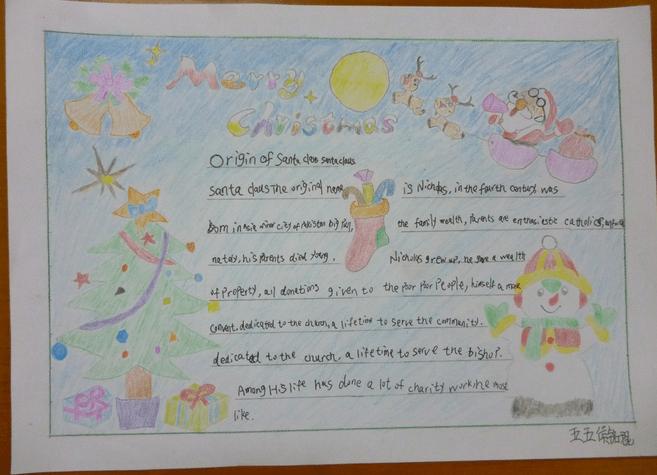 Merry
Christmas
Origin of Santa claus santaclaus
Santa claus The original name is Nicholas, in the fourth century was
Born in Asia minor city of big the family wealth, parents are enthusiastic catholics,
nately, his parents died young. Nicholas grew up, he gave a wealth
of property, all donations given to the poor poor people, himself a
convent, dedicated to the church, a lifetime to serve the community.
dedicated to the church, a lifetime to serve the bishop.
Among His life has done a lot of charity work he most
like.
五五